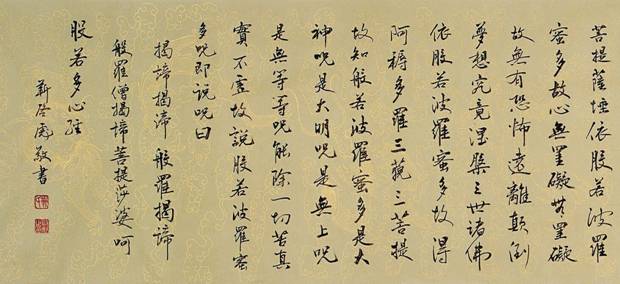 菩提薩埵依般若波羅
蜜多故心無罣礙無罣礙
故無有恐怖遠離顛倒
夢想究竟涅槃三世諸佛
依般若波羅蜜多故得
阿耨多羅三藐三菩提
故知般若波羅蜜多是大
神呪是大明呪是無上呪
是無等等呪能除一切苦真
實不虛故說般若波羅蜜
多呪即說呪曰
揭諦揭諦 般羅揭諦
般羅僧揭諦菩提莎婆呵
般若多心經
敬書